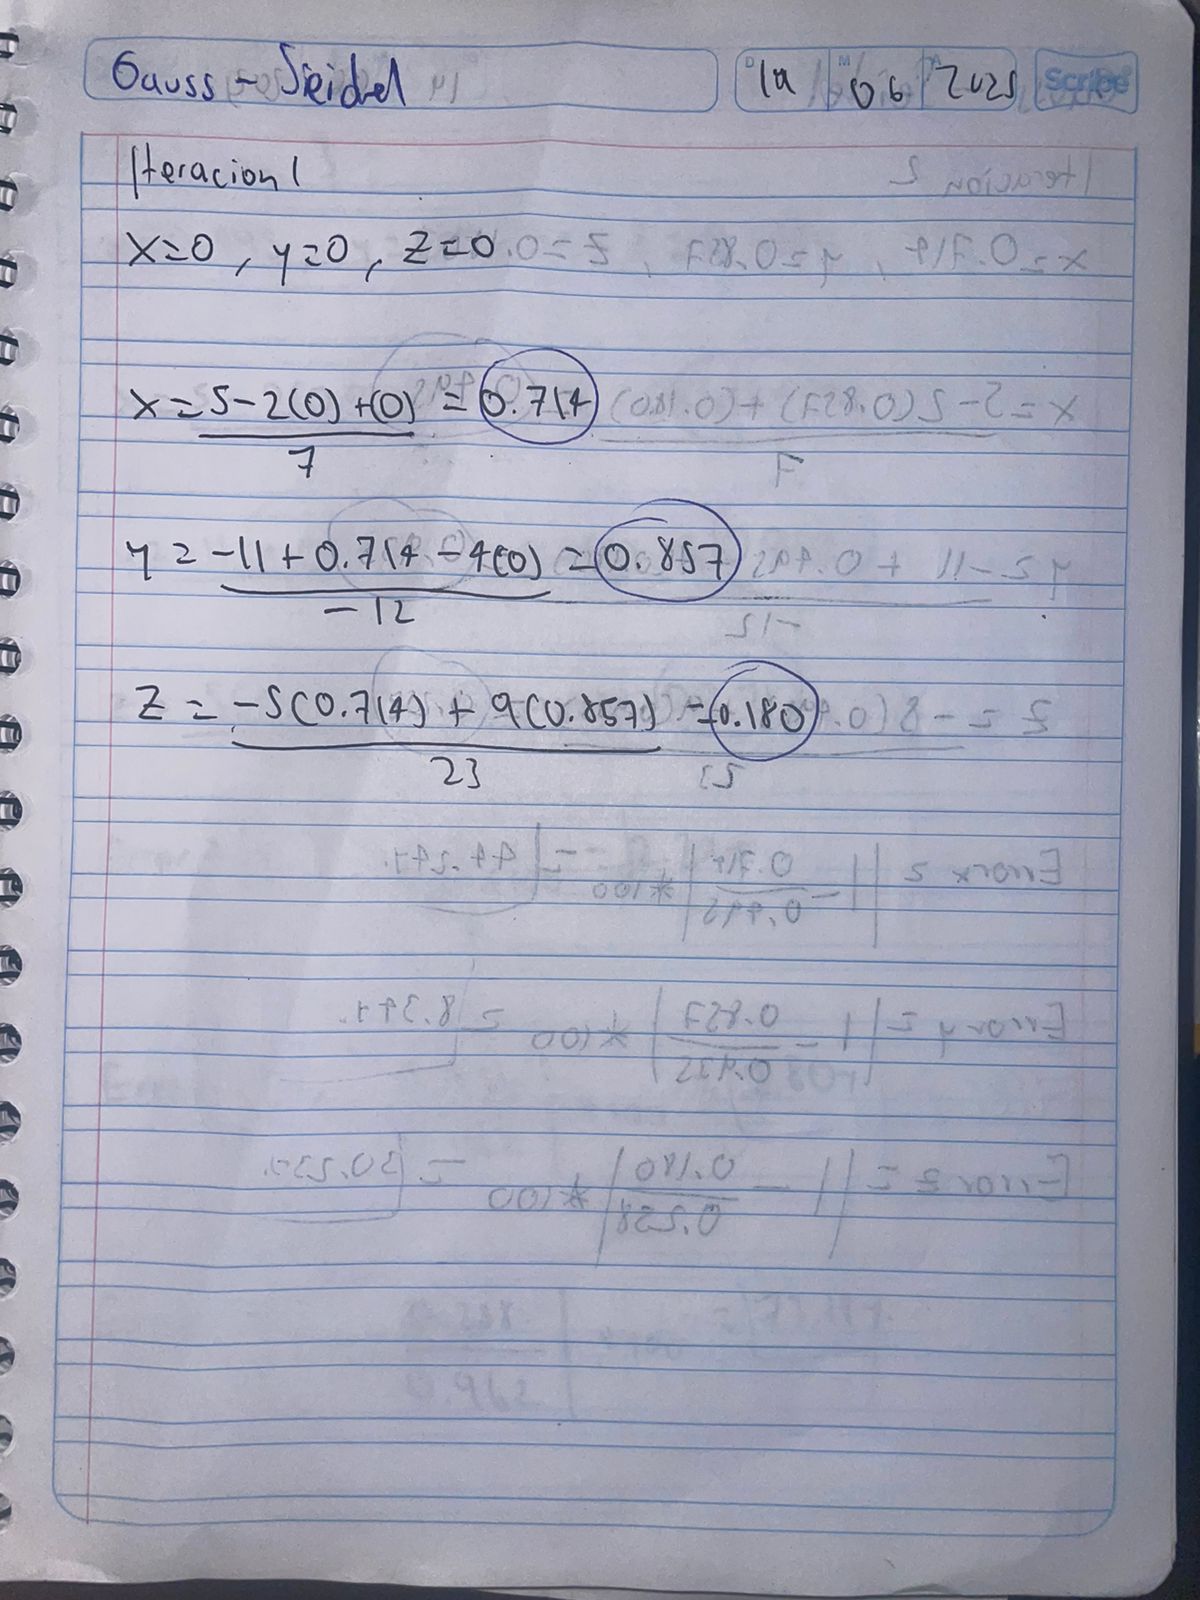 Gauss - Seidel 19 06 2025 Scribe
Iteracion 1
x=0 , y=0 , z=0
x = 5-2(0)+(0) = 0.714
7
y = -11 + 0.714 - 4(0) = 0.857
-12
z = -5(0.714) + 9(0.857) = 0.180
23